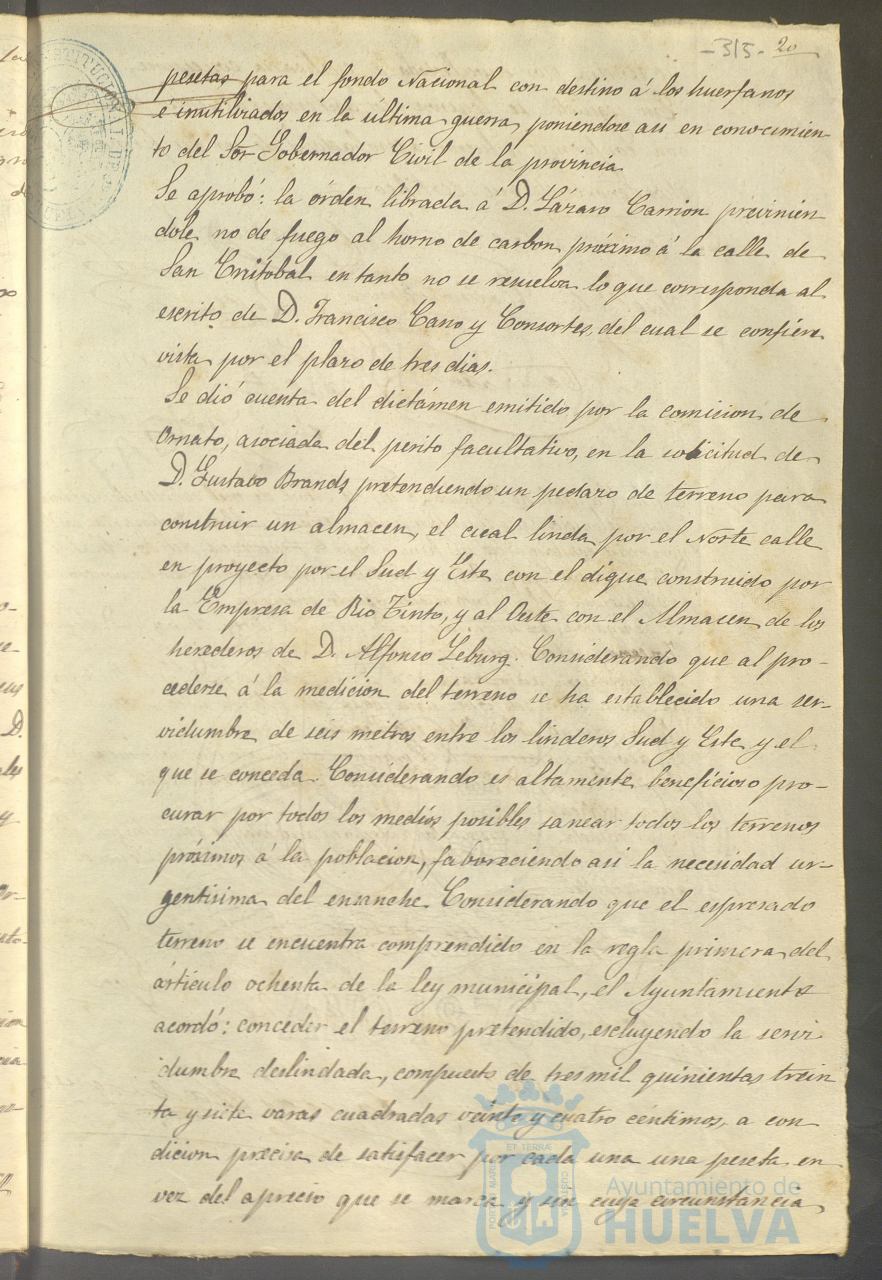 -315- 20
pesetas para el fondo Nacional con destino á los huerfanos
é inutilizados en la última guerra, poniendose asi en conocimien-
to del Sor Gobernador Civil de la provincia
Se aprobó: la órden librada á D. Lázaro Carrion previnien
dole no de fuego al horno de carbon próximo á la calle de
San Cristobal en tanto no se resuelva lo que corresponda al
escrito de D. Francisco Cano y Consortes, del cual se confiere
vista por el plazo de tres dias.
Se dió cuenta del dictámen emitido por la comision de
Ornato, asociada del perito facultativo, en la solicitud de
D. Gustavo Brands pretendiendo un pedazo de terreno para
construir un almacen, el cual linda por el Norte calle
en proyecto por el Sud y Este con el dique construido por
la Empresa de Rio Tinto, y al Oeste con el Almacen de los
herederos de D. Alfonso Leburg. Considerando que al pro-
cederse á la medicion del terreno se ha establecido una ser-
vidumbre de seis metros entre los linderos Sud y Este y el
que se conceda. Considerando es altamente beneficioso pro-
curar por todos los medios posibles sanear todos los terrenos
próximos á la poblacion, faboreciendo asi la necesidad ur-
gentisima del ensanche. Considerando que el espresado
terreno se encuentra comprendido en la regla primera del
árticulo ochenta de la ley municipal, el Ayuntamiento
acordó: conceder el terreno pretendido, escluyendo la servi
dumbre deslindada, compuesto de tres mil quinientas trein
ta y siete varas cuadradas veinte y cuatro céntimos, a con
dicion precisa de satisfacer por cada una una peseta en
vez del aprecio que se marca y sin cuya circunstancia
ET TERRÆ
Ayuntamiento de
HUELVA